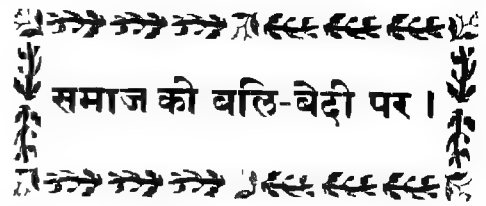 समाज की बलि-बेदी पर ।